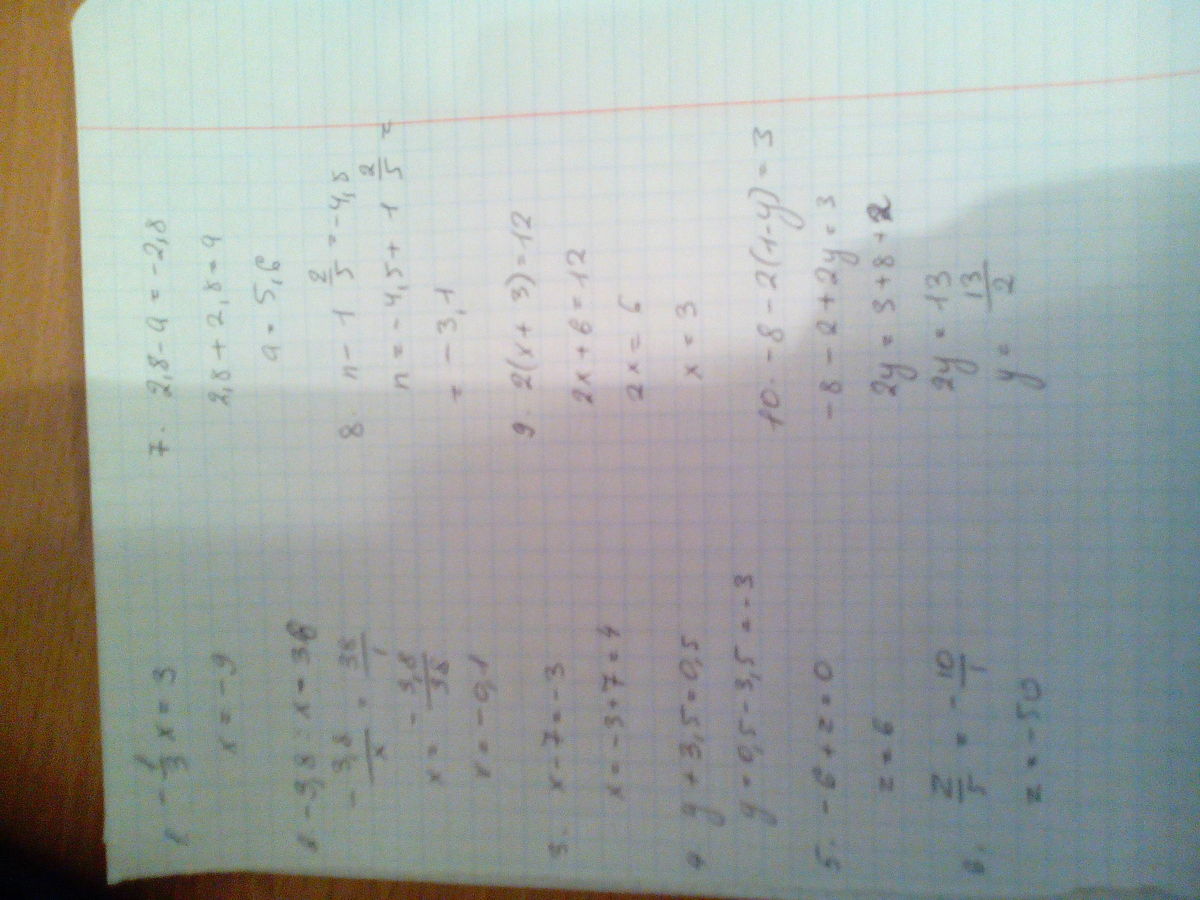 1 -1/3 x = 3
x = -9
2 -3,8 : x = 38
-3,8/x = 38/1
x = -3,8/38
x = -0,1
3. x - 7 = -3
x = -3 + 7 = 4
4 y + 3,5 = 0,5
y = 0,5 - 3,5 = -3
5. -6 + z = 0
z = 6
6. z/5 = -10/1
z = -50
7. 2,8 - a = -2,8
2,8 + 2,8 = a
a = 5,6
8. n - 1 2/5 = -4,5
n = -4,5 + 1 2/5 =
= -3,1
9. 2(x + 3) = 12
2x + 6 = 12
2x = 6
x = 3
10. -8 - 2(1 - y) = 3
-8 - 2 + 2y = 3
2y = 3 + 8 + 2
2y = 13
y = 13/2